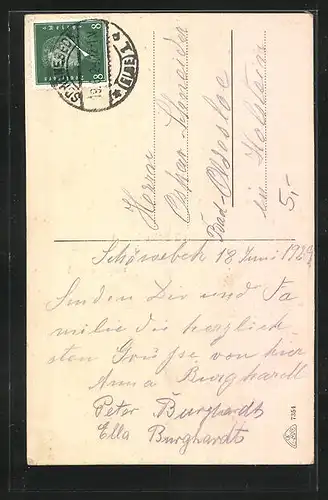 8 8
SCHÖNEBECK
(ELBE) 1
b
Herrn
Oskar Schneider
Bad-Oldesloe
in Holstein
5,-
Schönebeck 18 Juni 1929
Senden Dir und Fa-
milie die herzlich-
sten Grüsse von hier
Anna Burghardt
Peter Burghardt
Ella Burghardt
7354